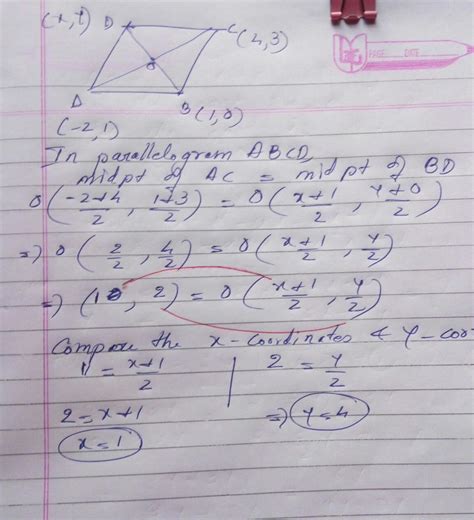 (x, y) D C (4, 3)
PAGE DATE
O
A B (1, 0)
(-2, 1)
In parallelogram ABCD,
midpt of AC = midpt of BD
O(-2+4/2, 1+3/2) = O(x+1/2, y+0/2)
=) O(2/2, 4/2) = O(x+1/2, y/2)
=) (1, 2) = O(x+1/2, y/2)
Compare the x-coordinates & y-coor
1 = x+1/2 2 = y/2
2 = x+1 =) y=4
x=1